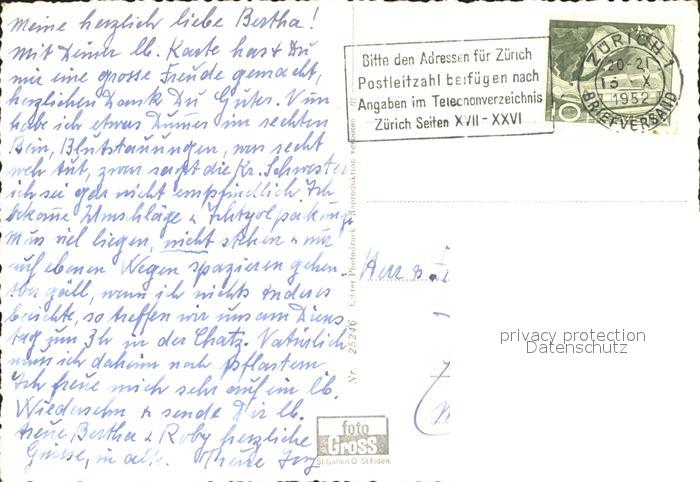 Meine herzlich liebe Bertha!
Mit Deiner lb. Karte hast Du
mir eine grosse Freude gemacht,
herzlichen Dank Du Gutes. Nun
habe ich etwas Dummes im rechten
Bein, Blutstauungen, was recht
weh tut, zwar sagt die Kr. Schwester
ich sei gar nicht empfindlich. Ich
bekomme Umschläge & Ichtyolpackung
muss viel liegen, nicht stehen & nur
auf ebenen Wegen spazieren gehen.
gäll, wenn ich nichts anderes
berichte, so treffen wir uns am Diens-
tag um 3h in der Chatz. Natürlich
muss ich daheim noch pflastern
Ich freue mich sehr auf ein lb.
Wiedersehn & sende Dir lb.
treue Bertha & Roby herzliche
Grüsse, in alter Treue
Bitte den Adressen für Zürich
Postleitzahl beifügen nach
Angaben im Telefonverzeichnis
Zürich Seiten XVII - XXVI
ZÜRICH 1
20-21
X
1952
BRIEFVERSAND
10
Nr. 25246 Echter Photodruck Reproduktion verboten
Herr &
privacy protection
Datenschutz
foto
Gross
St Gallen O St Fiden